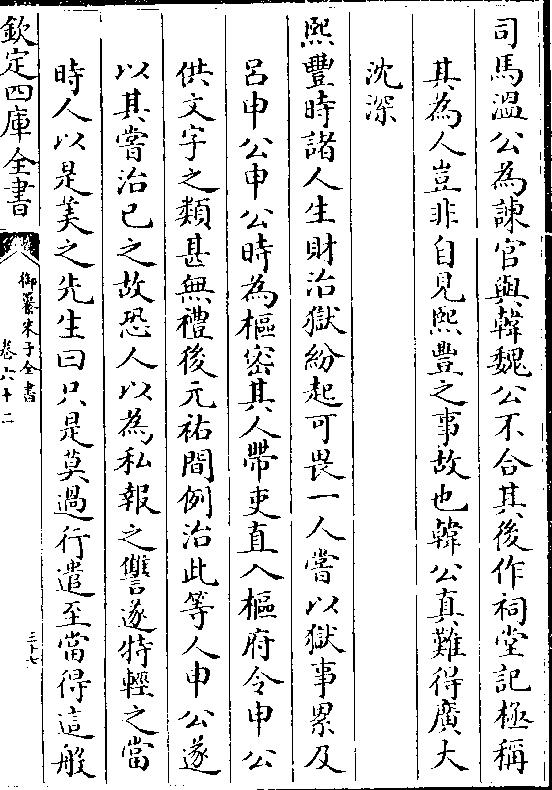 司馬溫公為諫官與韓魏公不合其後作祠堂記極稱
其為人豈非自見熙豐之事故也韓公真難得廣大
沈深
熙豐時諸人生財治獄紛起可畏一人嘗以獄事累及
呂申公申公時為樞密其人帶吏直入樞府令申公
供文字之類甚無禮後元祐間例治此等人申公遂
以其嘗治已之故恐人以為私報之讐遂特輕之當
時人以是美之先生曰只是莫過行遣至當得這般
欽定四庫全書
御纂朱子全書
卷六十二
三十七